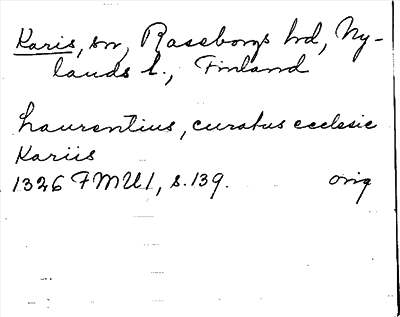 Karis, sn, Raseborgs hd, Ny-
lands l., Finland
Laurentius, curatus ecclesie
Kariis
1326 FMU 1, s. 139. orig